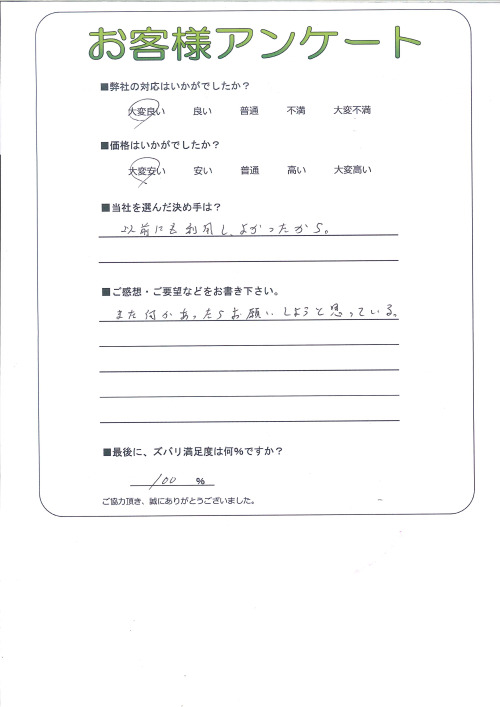 お客様アンケート
■弊社の対応はいかがでしたか？
大変良い 良い 普通 不満 大変不満
■価格はいかがでしたか？
大変安い 安い 普通 高い 大変高い
■当社を選んだ決め手は？
以前にも利用し、よかったから。
■ご感想・ご要望などをお書き下さい。
また何かあったらお願いしようと思っている。
■最後に、ズバリ満足度は何%ですか？
100 %
ご協力頂き、誠にありがとうございました。